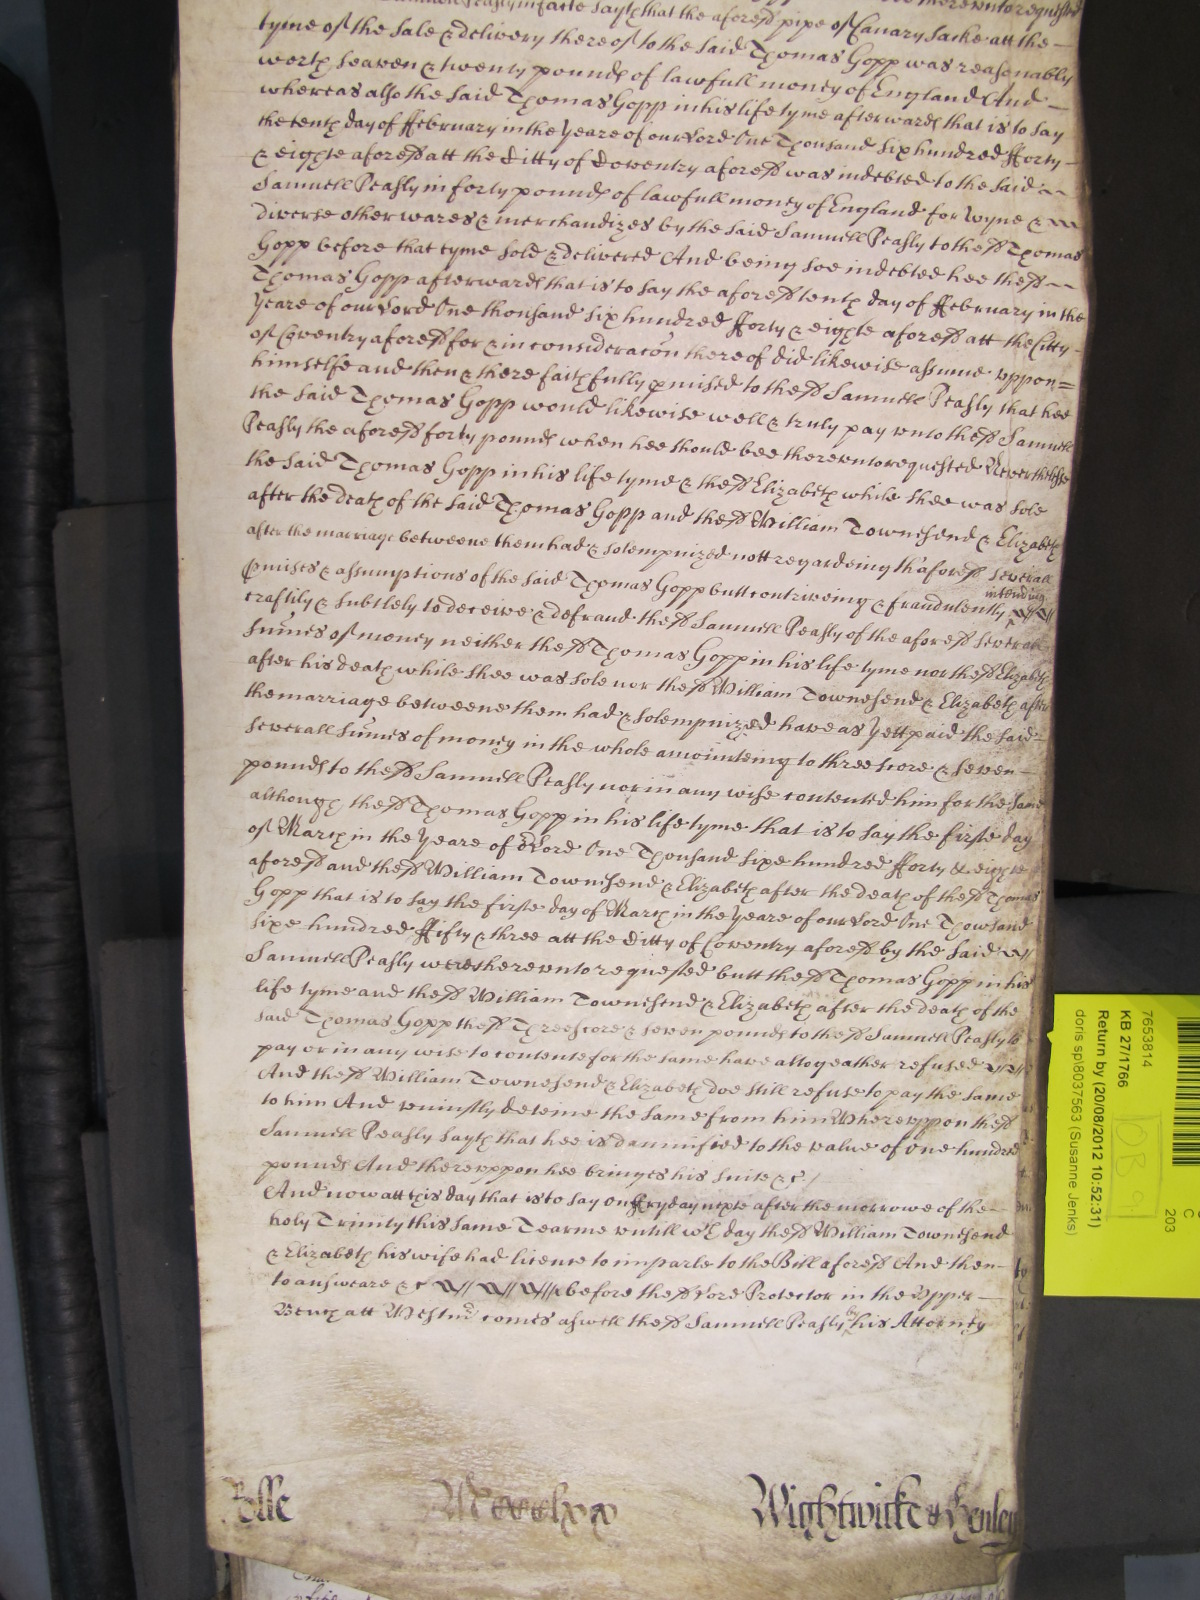 Samuell Peasly in facte sayth that the aforesd pipe of Canary sacke att the
tyme of the sale & delivery thereof to the said Thomas Gopp was reasonably
worth seaven & twenty pounds of lawfull money of England And
whereas also the said Thomas Gopp in his life tyme afterwards that is to say
the tenth day of ffebruary in the Yeare of our Lord One Thousand Six hundred fforty
& eighte aforesd att the Citty of Coventry aforesd was indebted to the said
Samuell Peasly in forty pounds of lawfull money of England for wyne &
diverse other wares & merchandizes by the said Samuell Peasly to the sd Thomas
Gopp before that tyme sold & delivered And being soe indebted hee the sd
Thomas Gopp afterwards that is to say the aforesd tenth day of ffebruary in the
Yeare of our Lord One thousand six hundred fforty & eighte aforesd att the Citty
of Coventry aforesd for & in consideracon thereof did likewise assume uppon
himselfe and then & there faithfully pmised to the sd Samuell Peasly that hee
the said Thomas Gopp would likewise well & truly pay unto the sd Samuell
Peasly the aforesd forty pounds when hee should bee thereunto requested Neverthelesse
the said Thomas Gopp in his life tyme & the sd Elizabeth while shee was sole
after the death of the said Thomas Gopp and the sd William Townesend & Elizabeth
after the marriage betweene them had & solempnized nott regardeing th'aforesd severall
pmises & assumptions of the said Thomas Gopp butt contriveing & fraudulently intending
craftily & subtlely to deceive & defraud the sd Samuell Peasly of the aforesd severall
sumes of money neither the sd Thomas Gopp in his life tyme nor the sd Elizabeth
after his death while shee was sole nor the sd William Townesend & Elizabeth after
the marriage betweene them had & solempnized have as Yett paid the said
severall sumes of money in the whole amounteing to threescore & seven
pounds to the sd Samuell Peasly nor in any wise contented him for the same
although the sd Thomas Gopp in his life tyme that is to say the firste day
of March in the Yeare of or Lord One Thousand sixe hundred fforty & eighte
aforesd and the sd William Townesend & Elizabeth after the death of the sd Thomas
Gopp that is to say the firste day of March in the Yeare of our Lord One Thowsand
sixe hundred ffifty & three att the Citty of Coventry aforesd by the said
Samuell Peasly were thereunto requested butt the sd Thomas Gopp in his
life tyme and the sd William Townesend & Elizabeth after the death of the
said Thomas Gopp the sd Threescore & seven pounds to the sd Samuell Peasly to
pay or in any wise to contente for the same have altogeather refused
And the sd William Townesend & Elizabeth doe still refuse to pay the same
to him And uniustly deteine the same from him Whereuppon the sd
Samuell Peasly sayth that hee is damnified to the value of one hundred
pounds And thereuppon hee bringes his suite &c
And now att this day that is to say on ffryday nexte after the morrowe of the
holy Trinity this same Tearme untill wch day the sd William Townesend
& Elizabeth his wife had licence to imparle to the Bill aforesd And then
to answeare &c before the sd Lord Protector in the Upper
Bench att Westmr comes aswell the sd Samuell Peasly by his Attorney
Rolle
Wightwicke & Henley
7653814
KB 27/1766
Return by (20/08/2012 10:52:31)
doris sp\8037563 (Susanne Jenks)
C
203